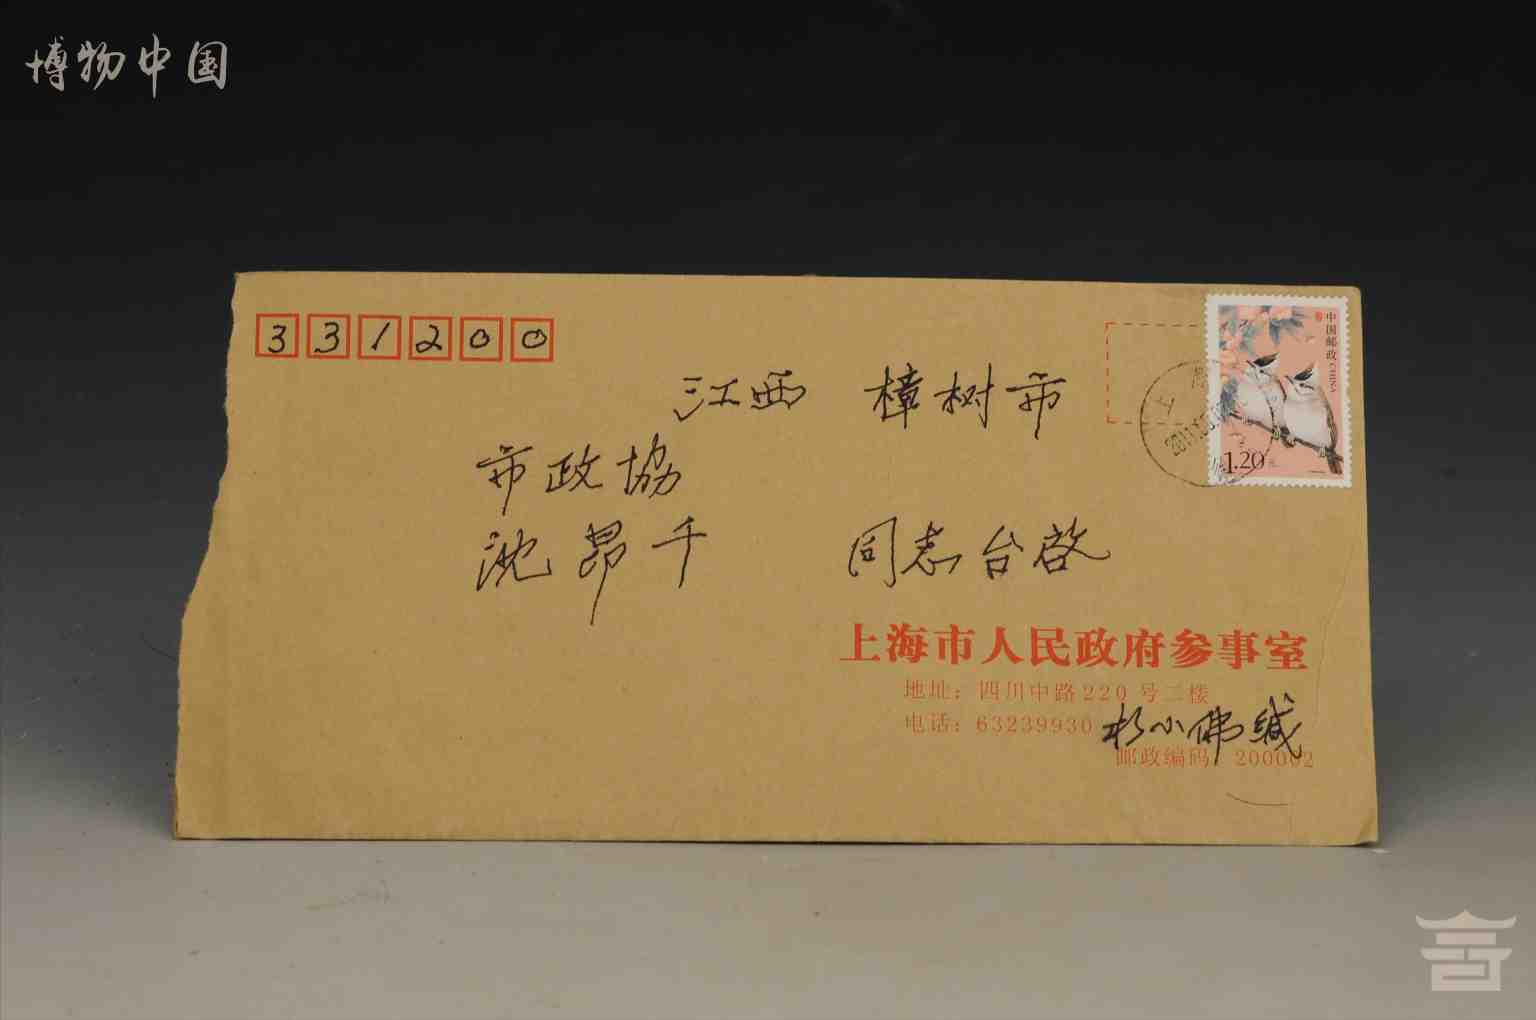 博物中国
331200
中国邮政 CHINA
1.20元
上海
江西 樟树市
市政協
沈昂千 同志台啓
上海市人民政府参事室
地址：四川中路220号二楼
电话：63239930
小佛缄
邮政编码 200002